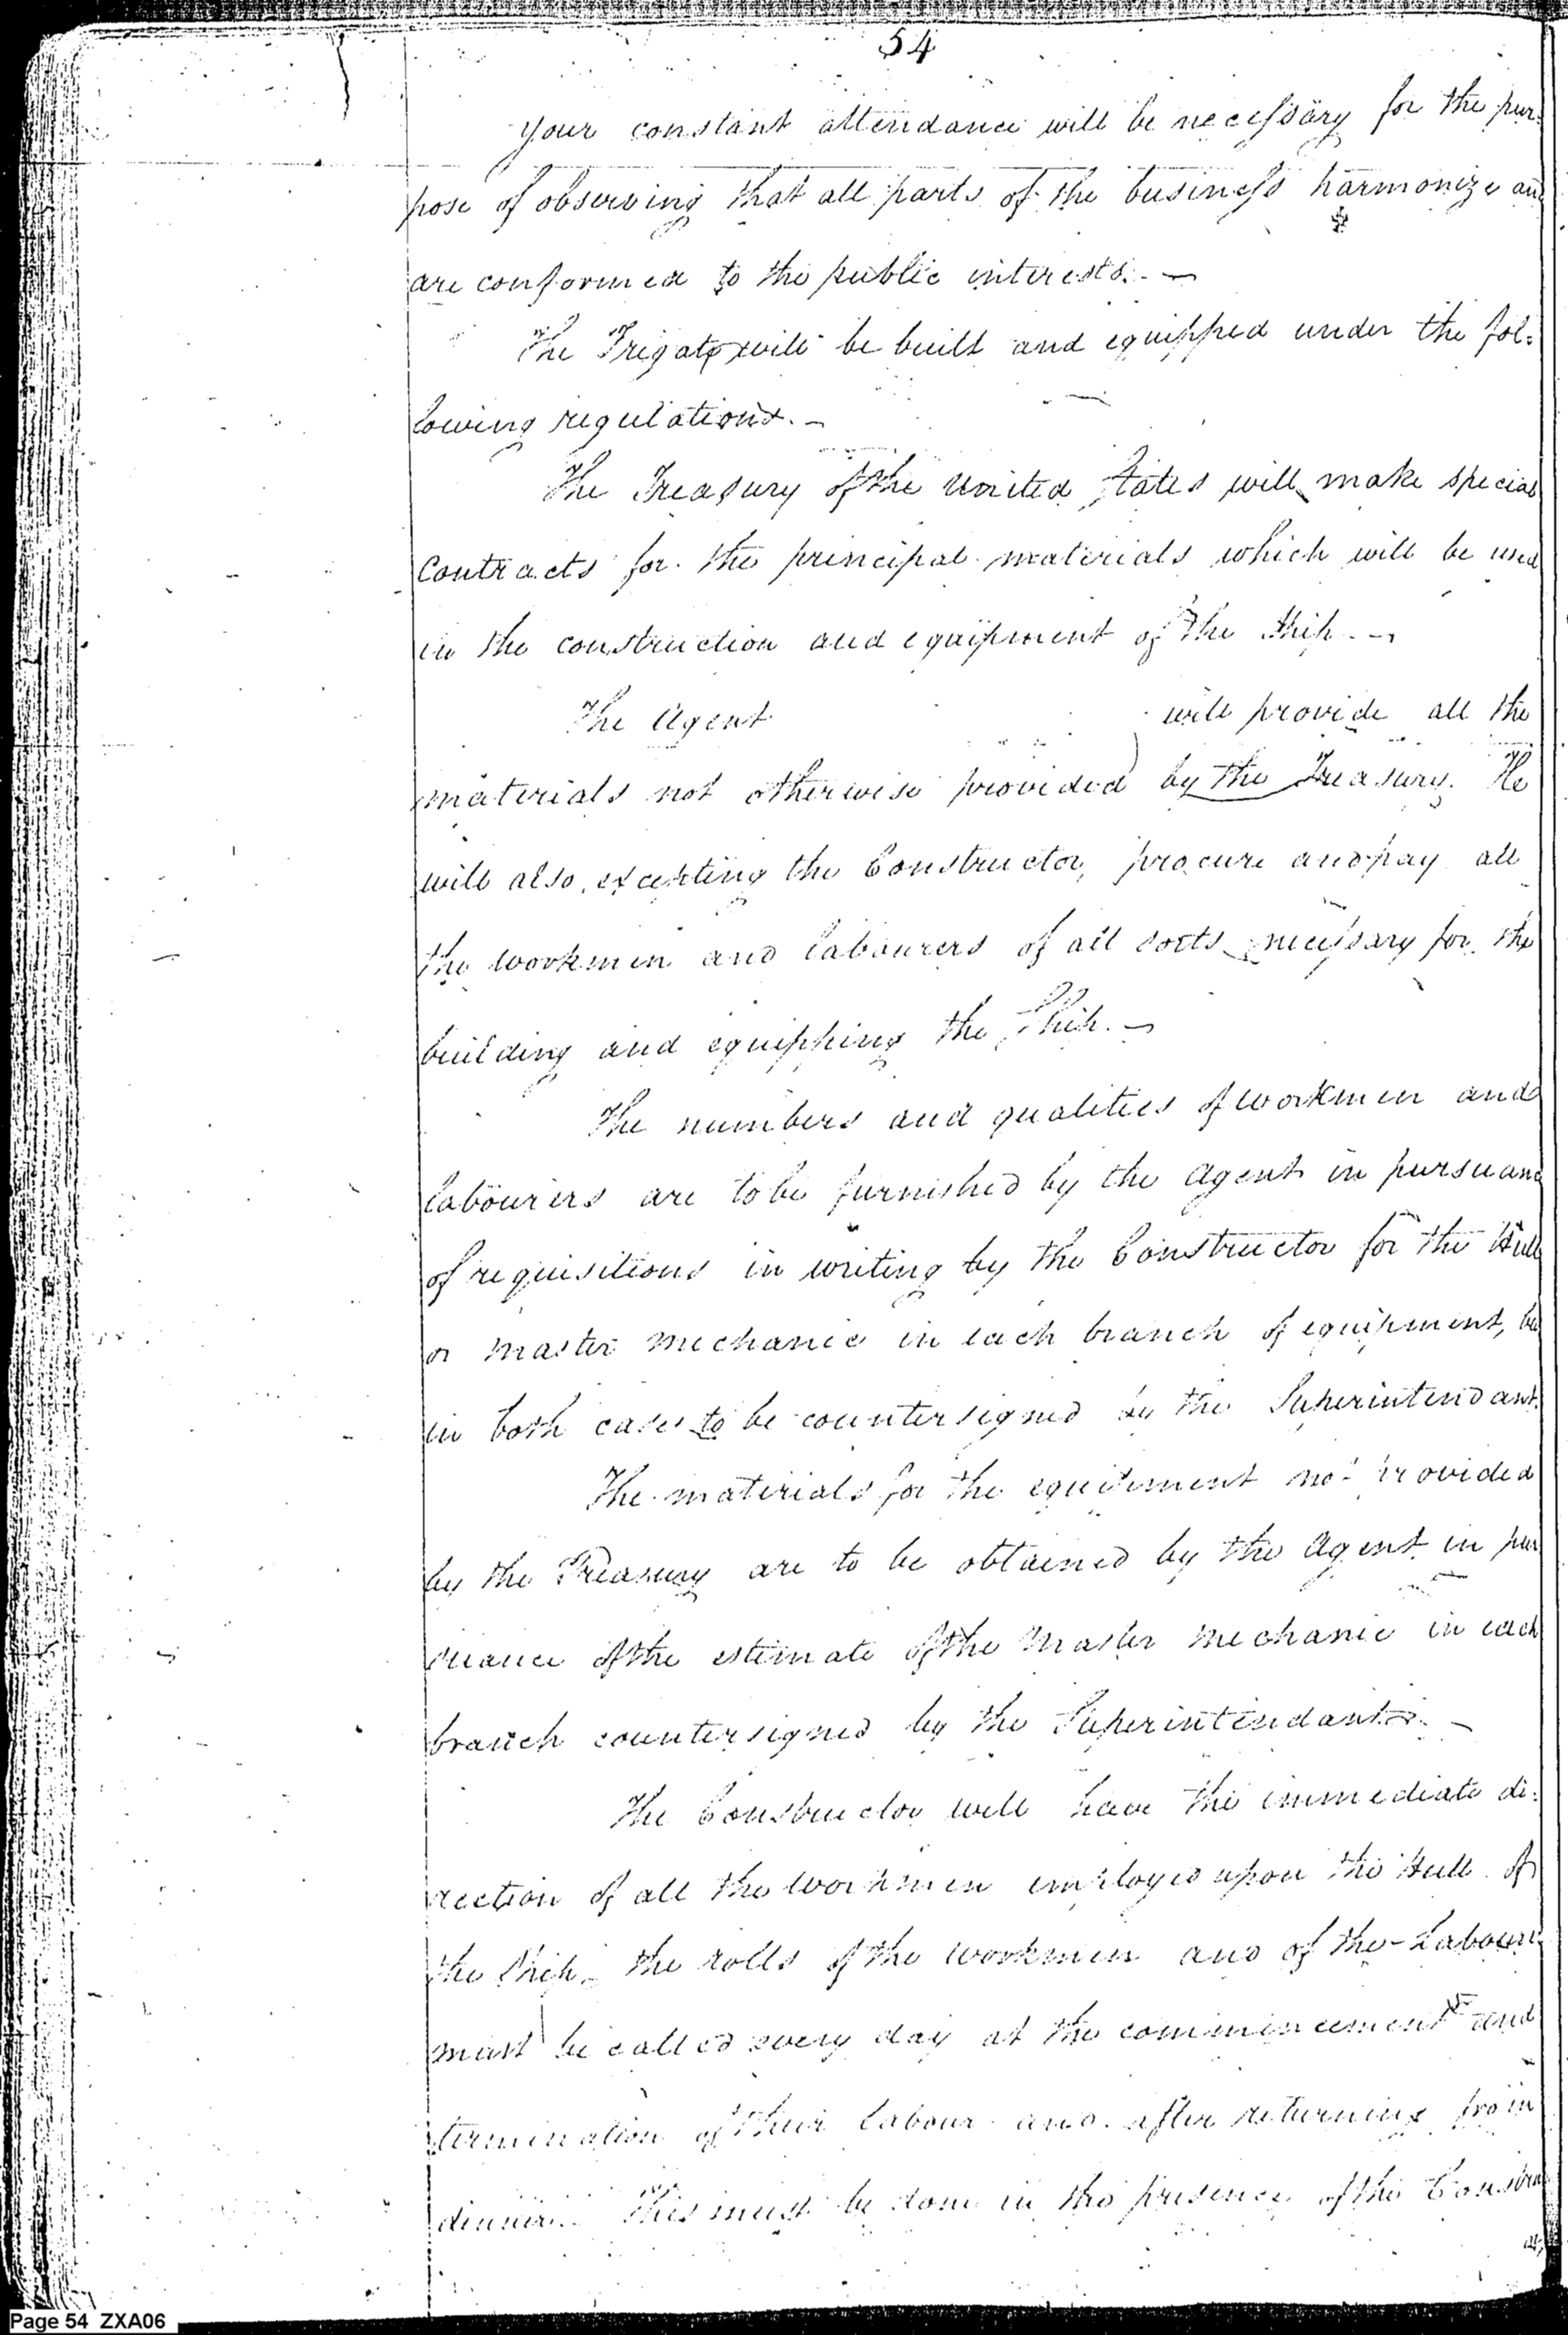 54
Your constant attendance will be necessary for the pur:
pose of observing that all parts of the business harmonize and
are conformed to the public interests. —
The Frigate will be built and equipped under the fol:
lowing regulations. —
The Treasury of the United States will make special
Contracts for the principal materials which will be used
in the construction and equipment of the Ship. —
The Agent will provide all the
materials not otherwise provided by the Treasury. He
will also, excepting the Constructor, procure and pay all
the workmen and labourers of all sorts necessary for the
building and equipping the Ship. —
The numbers and qualities of workmen and
labourers are to be furnished by the Agent in pursuance
of requisitions in writing by the Constructor for the Hull
or master mechanic in each branch of equipment, but
in both cases to be countersigned by the Superintendant.
The materials for the equipment not provided
by the Treasury are to be obtained by the Agent in pur
suance of the estimate of the Master mechanic in each
branch countersigned by the Superintendant. —
The Constructor will have the immediate di:
rection of all the workmen employed upon the Hull of
the Ship. the rolls of the workmen and of the Labourers
must be called every day at the commencement and
termination of their labour and after returning from
dinner. This must be done in the presence of the Constru
Page 54 ZXA06